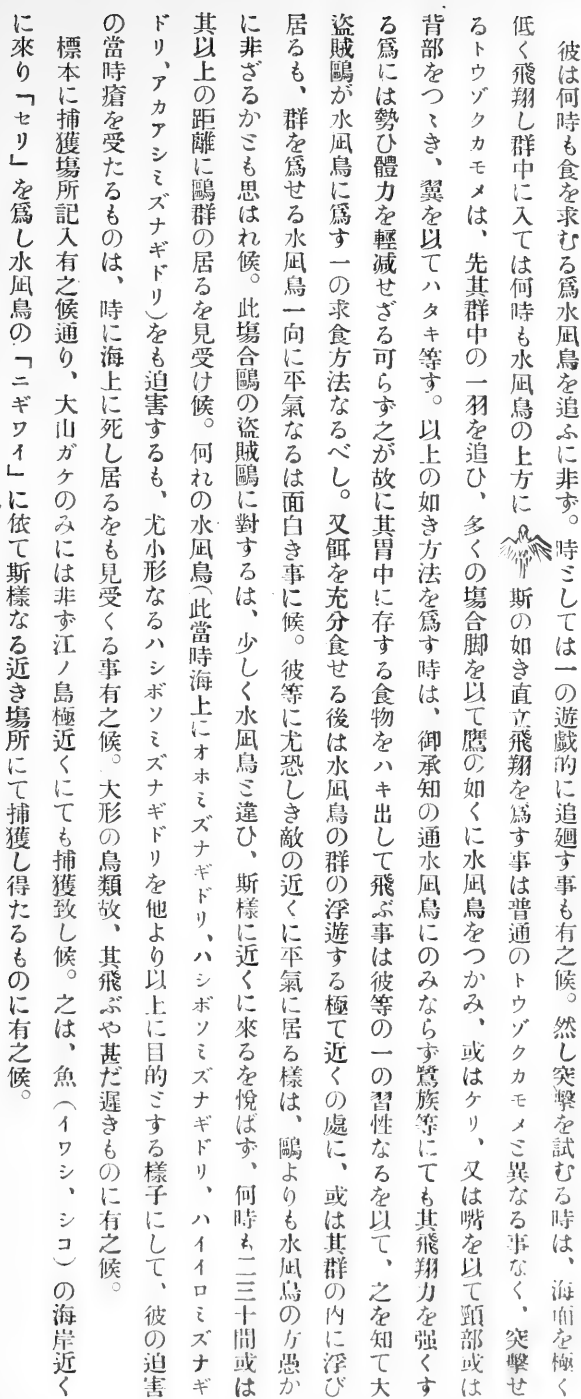 彼は何時も食を求むる爲水凪鳥を追ふに非ず。時としては一の遊戯的に追廻す事も有之候。然し突擊を試むる時は、海面を極く
低く飛翔し群中に入ては何時も水凪鳥の上方に斯の如き直立飛翔を爲す事は普通のトウゾクカモメと異なる事なく、突擊せ
るトウゾクカモメは、先其群中の一羽を追ひ、多くの塲合脚を以て鷹の如くに水凪鳥をつかみ、或はケリ、又は嘴を以て頭部或は
背部をつゝき、翼を以てハタキ等す。以上の如き方法を爲す時は、御承知の通水凪鳥にのみならず鷺族等にても其飛翔力を强くす
る爲には勢ひ體力を輕減せざる可らず之が故に其胃中に存する食物をハキ出して飛ぶ事は彼等の一の習性なるを以て、之を知て大
盜賊鷗が水凪鳥に爲す一の求食方法なるべし。又餌を充分食せる後は水凪鳥の群の浮遊する極て近くの處に、或は其群の内に浮び
居るも、群を爲せる水凪鳥一向に平氣なるは面白き事に候。彼等に尤恐しき敵の近くに平氣に居る樣は、鷗よりも水凪鳥の方愚か
に非ざるかとも思はれ候。此塲合鷗の盜賊鷗に對するは、少しく水凪鳥と違ひ、斯樣に近くに來るを悅ばず、何時も二三十間或は
其以上の距離に鷗群の居るを見受け候。何れの水凪鳥(此當時海上にオホミズナギドリ、ハシボソミズナギドリ、ハイイロミズナギ
ドリ、アカアシミズナギドリ)をも迫害するも、尤小形なるハシボソミズナギドリを他より以上に目的とする樣子にして、彼の迫害
の當時瘡を受たるものは、時に海上に死し居るをも見受くる事有之候。大形の鳥類故、其飛ぶや甚だ遲きものに有之候。
標本に捕獲塲所記入有之候通り、大山ガケのみには非ず江ノ島極近くにても捕獲致し候。之は、魚(イワシ、シコ)の海岸近く
に來り「セリ」を爲し水凪鳥の「ニギワイ」に依て斯樣なる近き塲所にて捕獲し得たるものに有之候。